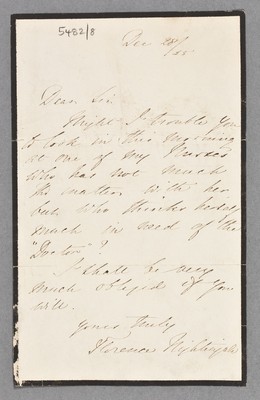 5482/8
Dec 28/55
Dear Sir
Might I trouble you
to look in this morning
at one of my Nurses
who has not much
the matter with her
but who thinks herself
much in need of the
"Doctor"?
I shall be very
much obliged if you
will.
yours truly
Florence Nightingale